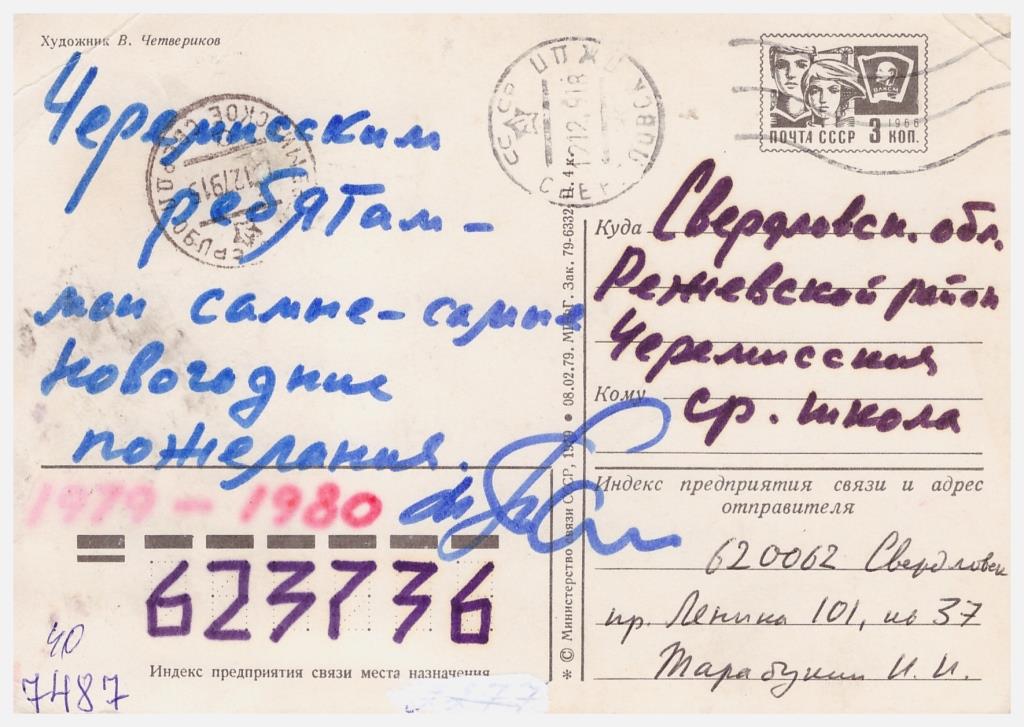 Художник В. Четвериков
Черемисским
ребятам-
мои самые-самые
новогодние
пожелания.
1979 - 1980
623736
Индекс предприятия связи места назначения
40
7487
* © Министерство связи СССР, 1979 • 08.02.79. Зак. 79-6332. Ц. 4 к.
СССР
1212
ПОЧТА СССР 3 КОП.
1966
ВЛКСМ
Куда Свердловск. обл.
Режевской район
Черемисская
Кому ср. школа
Индекс предприятия связи и адрес
отправителя
620062 Свердловск
пр. Ленина 101, кв 37
Тарабукин И. И.